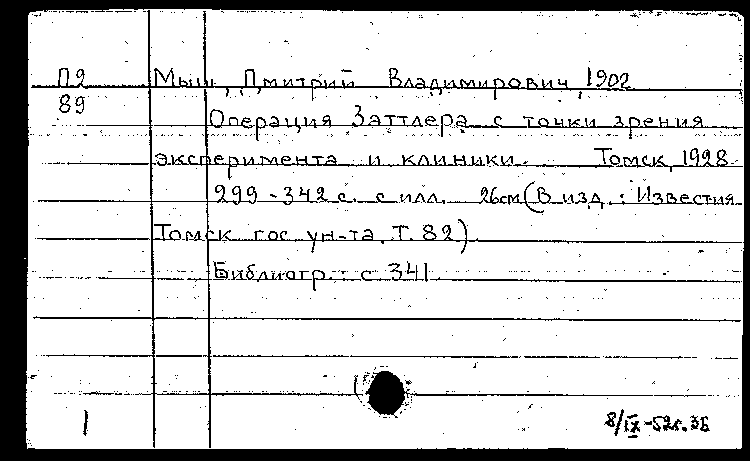 П2 Мыш, Дмитрий Владимирович, 1902
89
Операция Заттлера с точки зрения
эксперимента и клиники. Томск, 1928
299-342 с. с илл. 26см (В изд.: Известия
Томск. гос. ун-та. Т. 82)
Библиогр.: с 341
1 8/IX-52г.